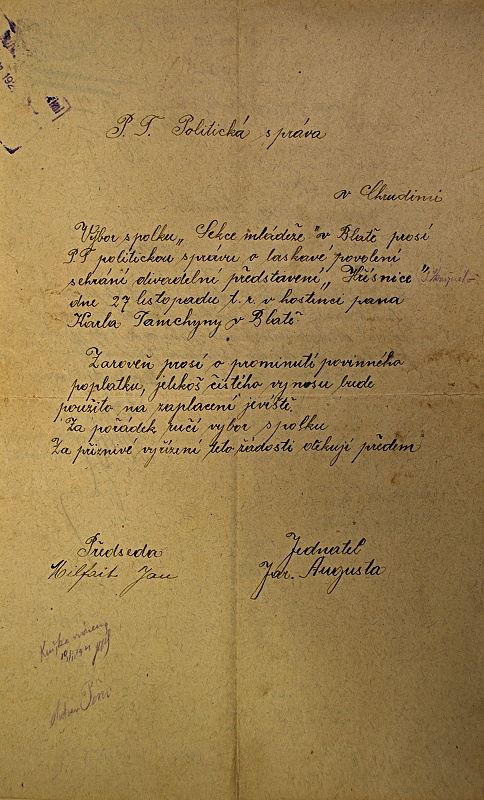 192
P. T. Politická správa
v Chrudimi
Výbor spolku „Sekce mládeže" v Blatě prosí
P.T. politickou správu o laskavé povolení
sehrání divadelní představení „Hříšnice"
dne 27 listopadu t. r. v hostinci pana
Karla Tamchyny v Blatě.
Zaroveň prosí o prominutí povinného
poplatku, jelikoš čistého vynosu bude
použito na zaplacení jeviště.
Za pořádek ručí vybor spolku
Za přiznivé vyřízení teto žádosti děkují předem
Předseda
Jednatel
Hilfait Jan
Jar. Augusta